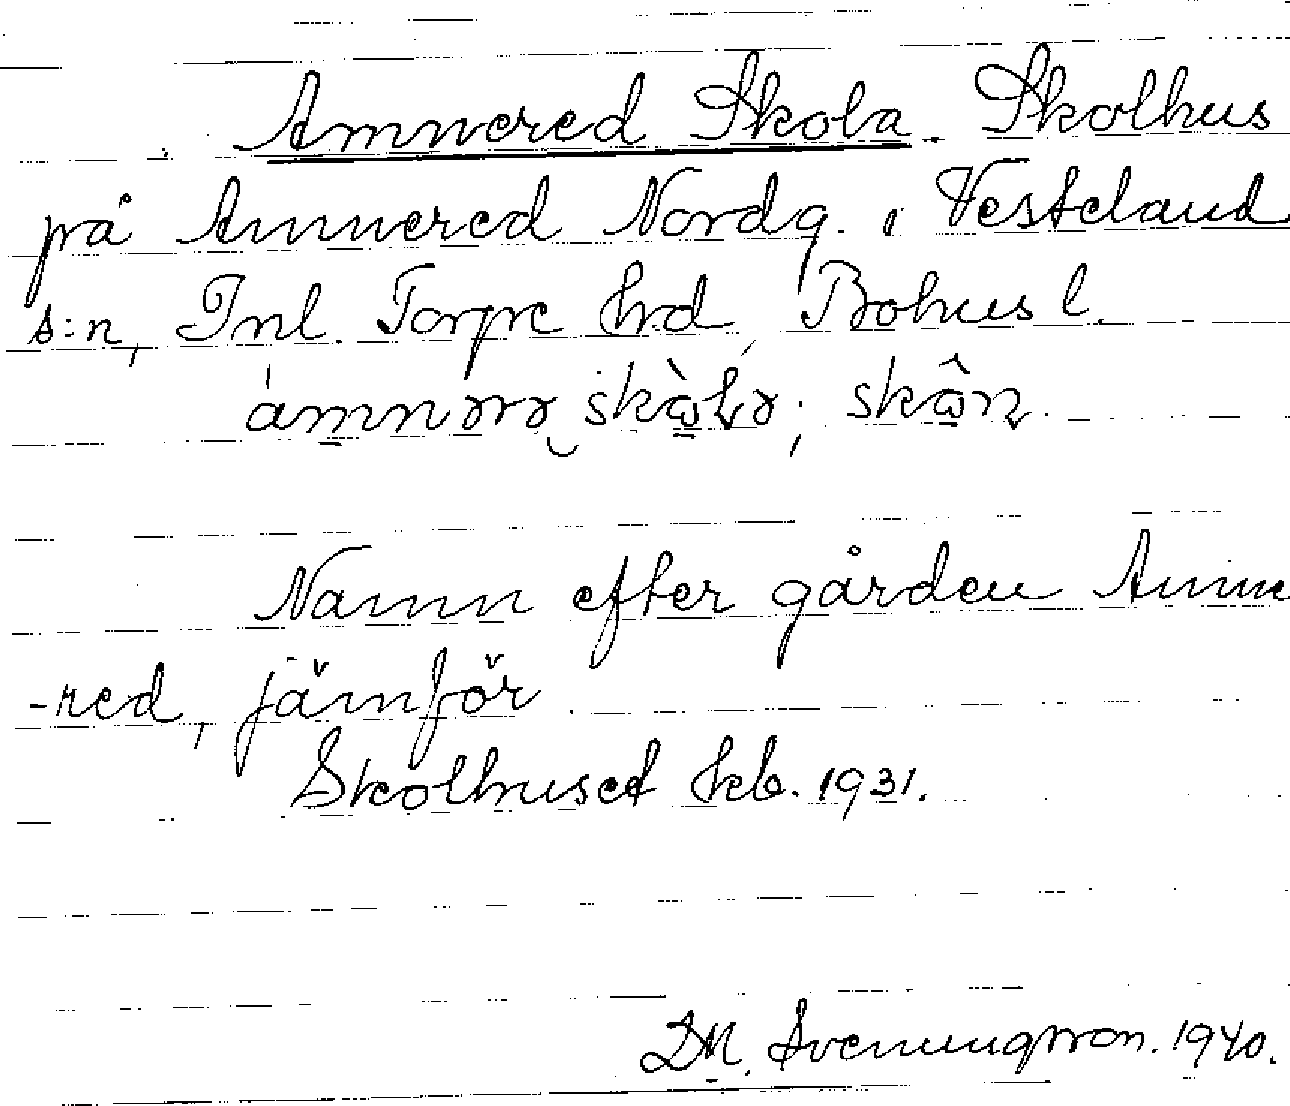 Amnered Skola. Skolhus
på Amnered Nordg. i Vesteland
s:n, Inl. Torpe hrd, Bohus l.
Namn efter gården Amne
-red, jämför
Skolhuset kb. 1931.
D.M. Svenungsson. 1940.